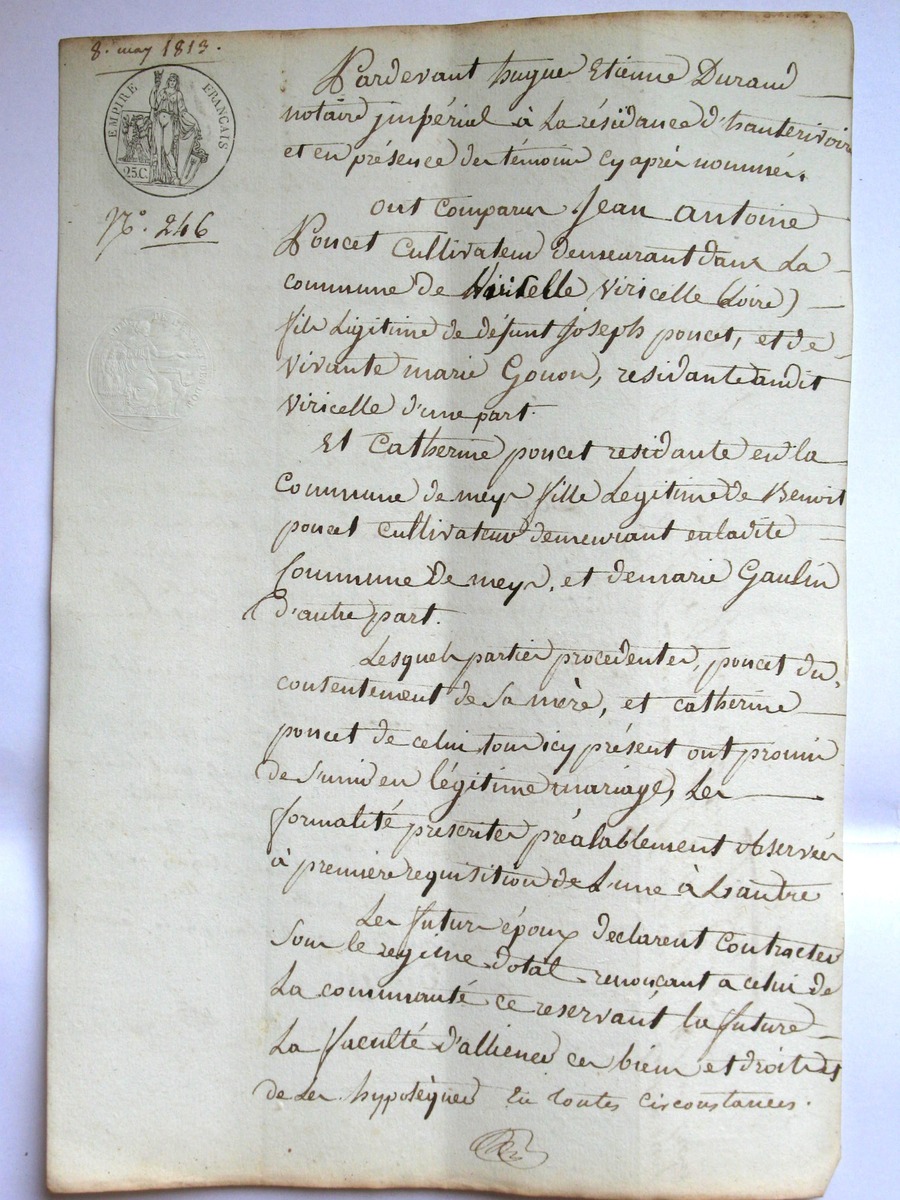 8. may 1813.
EMPIRE FRANÇAIS
25 C.
N.° 246
Pardevant hugue Etienne Durand
notaire jmpérial à La résidance d'hauterivoire
et en présence des témoins cy après nommés.
ont comparus Jean antoine
Poncet Cultivateur demeurant dans La
commune de Viricelle Viricelle (Loire)
fils Légitime de défunt Joseph poncet, et de
vivante marie Gouon, residante audit
viricelle d'une part.
Et Catherine poncet residante en la
Commune de meys fille Legitime de Benoit
poncet cultivateur demeurant en ladite
Commune de meys, et de marie Gaulin
d'autre part.
Lesquels parties procedentes, poncet du
contentement de Sa mère, et catherine
poncet de celui tous icy présent ont promis
de s'unir en légitime mariage, Les
formalité prescrites préalablement observées
à première requisition de L'une à L'autre
Les futurs époux declarent Contracter
Sous le regime dotal renonçant a celui de
La communté ce reservant la future
La faculté d'alliener ces biens et droits et
de Les hypotèquer En toutes circonstances.